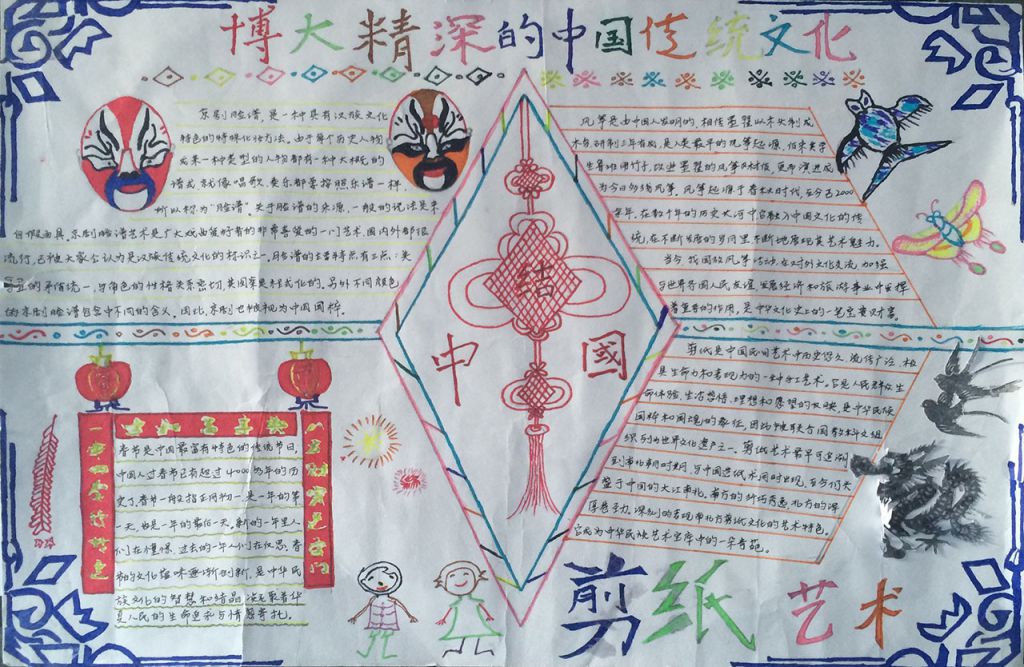 博大精深的中国传统文化
京剧脸谱,是一种具有汉族文化
特色的特殊化妆方法。由于每个历史人物
或某一种类型的人物都有一种大概的
谱式,就像唱歌、奏乐都要按照乐谱一样,
所以称为"脸谱"。关于脸谱的来源,一般的说法是来
自假面具。京剧脸谱艺术是广大戏曲爱好者的非常喜爱的一门艺术,国内外都很
流行,已被大家公认为是汉族传统文化的标识之一。
的矛盾统一,与角色的性格关系密切,其图案是程式化的。另外不同颜色
的京剧脸谱包含中不同的含义。因此,京剧也被视为中国国粹。
风筝是由中国人发明的,相传墨翟以木头制成
木鸟,研制三年有成,是人类最早的风筝起源。后来鲁
生鲁班用竹子,改进墨翟的风筝材质,更而演进成
为今日多线风筝。风筝起源于春秋时代,至今已2000
余年。在数千年的历史大河中容融入中国文化的传
统,在不断发展的岁月里,不断地展现其艺术魅力。
当今,我国放风筝活动,在对外文化交流,加强
与世界各国人民友谊,发展经济和旅游事业中发挥
着重要的作用,是中华文化史上的一笔宝贵财富。
结
中
國
春节是中国最富有特色的传统节日,
中国人过春节已有超过4000多年的历
史了。春节一般指正月初一,是一年的第
一天,也是一年的最后一天。新的一年里人
们在憧憬,过去的一年人们在反思。春
节的文化意味逐渐创新,是中华民
族文化的智慧和结晶,凝聚着华
夏人民的生命追求与情感寄托。
剪纸是中国民间艺术中历史悠久,流传广泛,极
具生命力和表现力的一种手工艺术。它是人民群众生
命体验、生活感悟、理想和愿望的反映,是中华民族
国粹和国魂的象征,因此被联合国教科文组
织列为世界文化遗产之一。剪纸艺术最早可追溯
到南北朝时期,与中国造纸术同时出现,至今仍大
盛于中国的大江南北。南方的纤巧秀逸,北方的浑
厚苍劲,深刻的表现南北方剪纸文化的艺术特色,
它成为中华民族艺术宝库中的一朵奇葩。
剪纸艺术